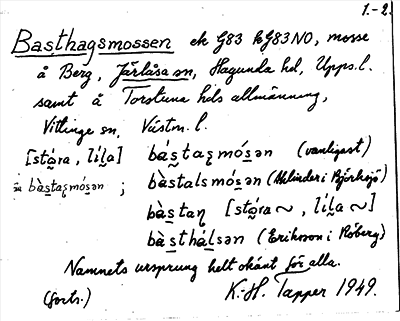 1.-2.
Basthagsmossen ek G83 kG83NO, mosse
å Berg, Järlåsa sn, Hagunda hd, Upps.l.
samt å Torstuna hds allmänning,
Vittinge sn, Västm.l.
[stó̱ra, lı́l̰a] bás̱taʒmós̱ən (vanligast)
bàs̱taʒmós̱ən; bàstalsmós̱ən (Melinder i Björksjö)
bàs̱taɳ [stó̱ra ~, lı́l̰a ~]
bàs̱thálsən (Eriksson i Röberg)
Namnets ursprung helt okänt för alla.
(forts.) K.-H. Tapper 1949.